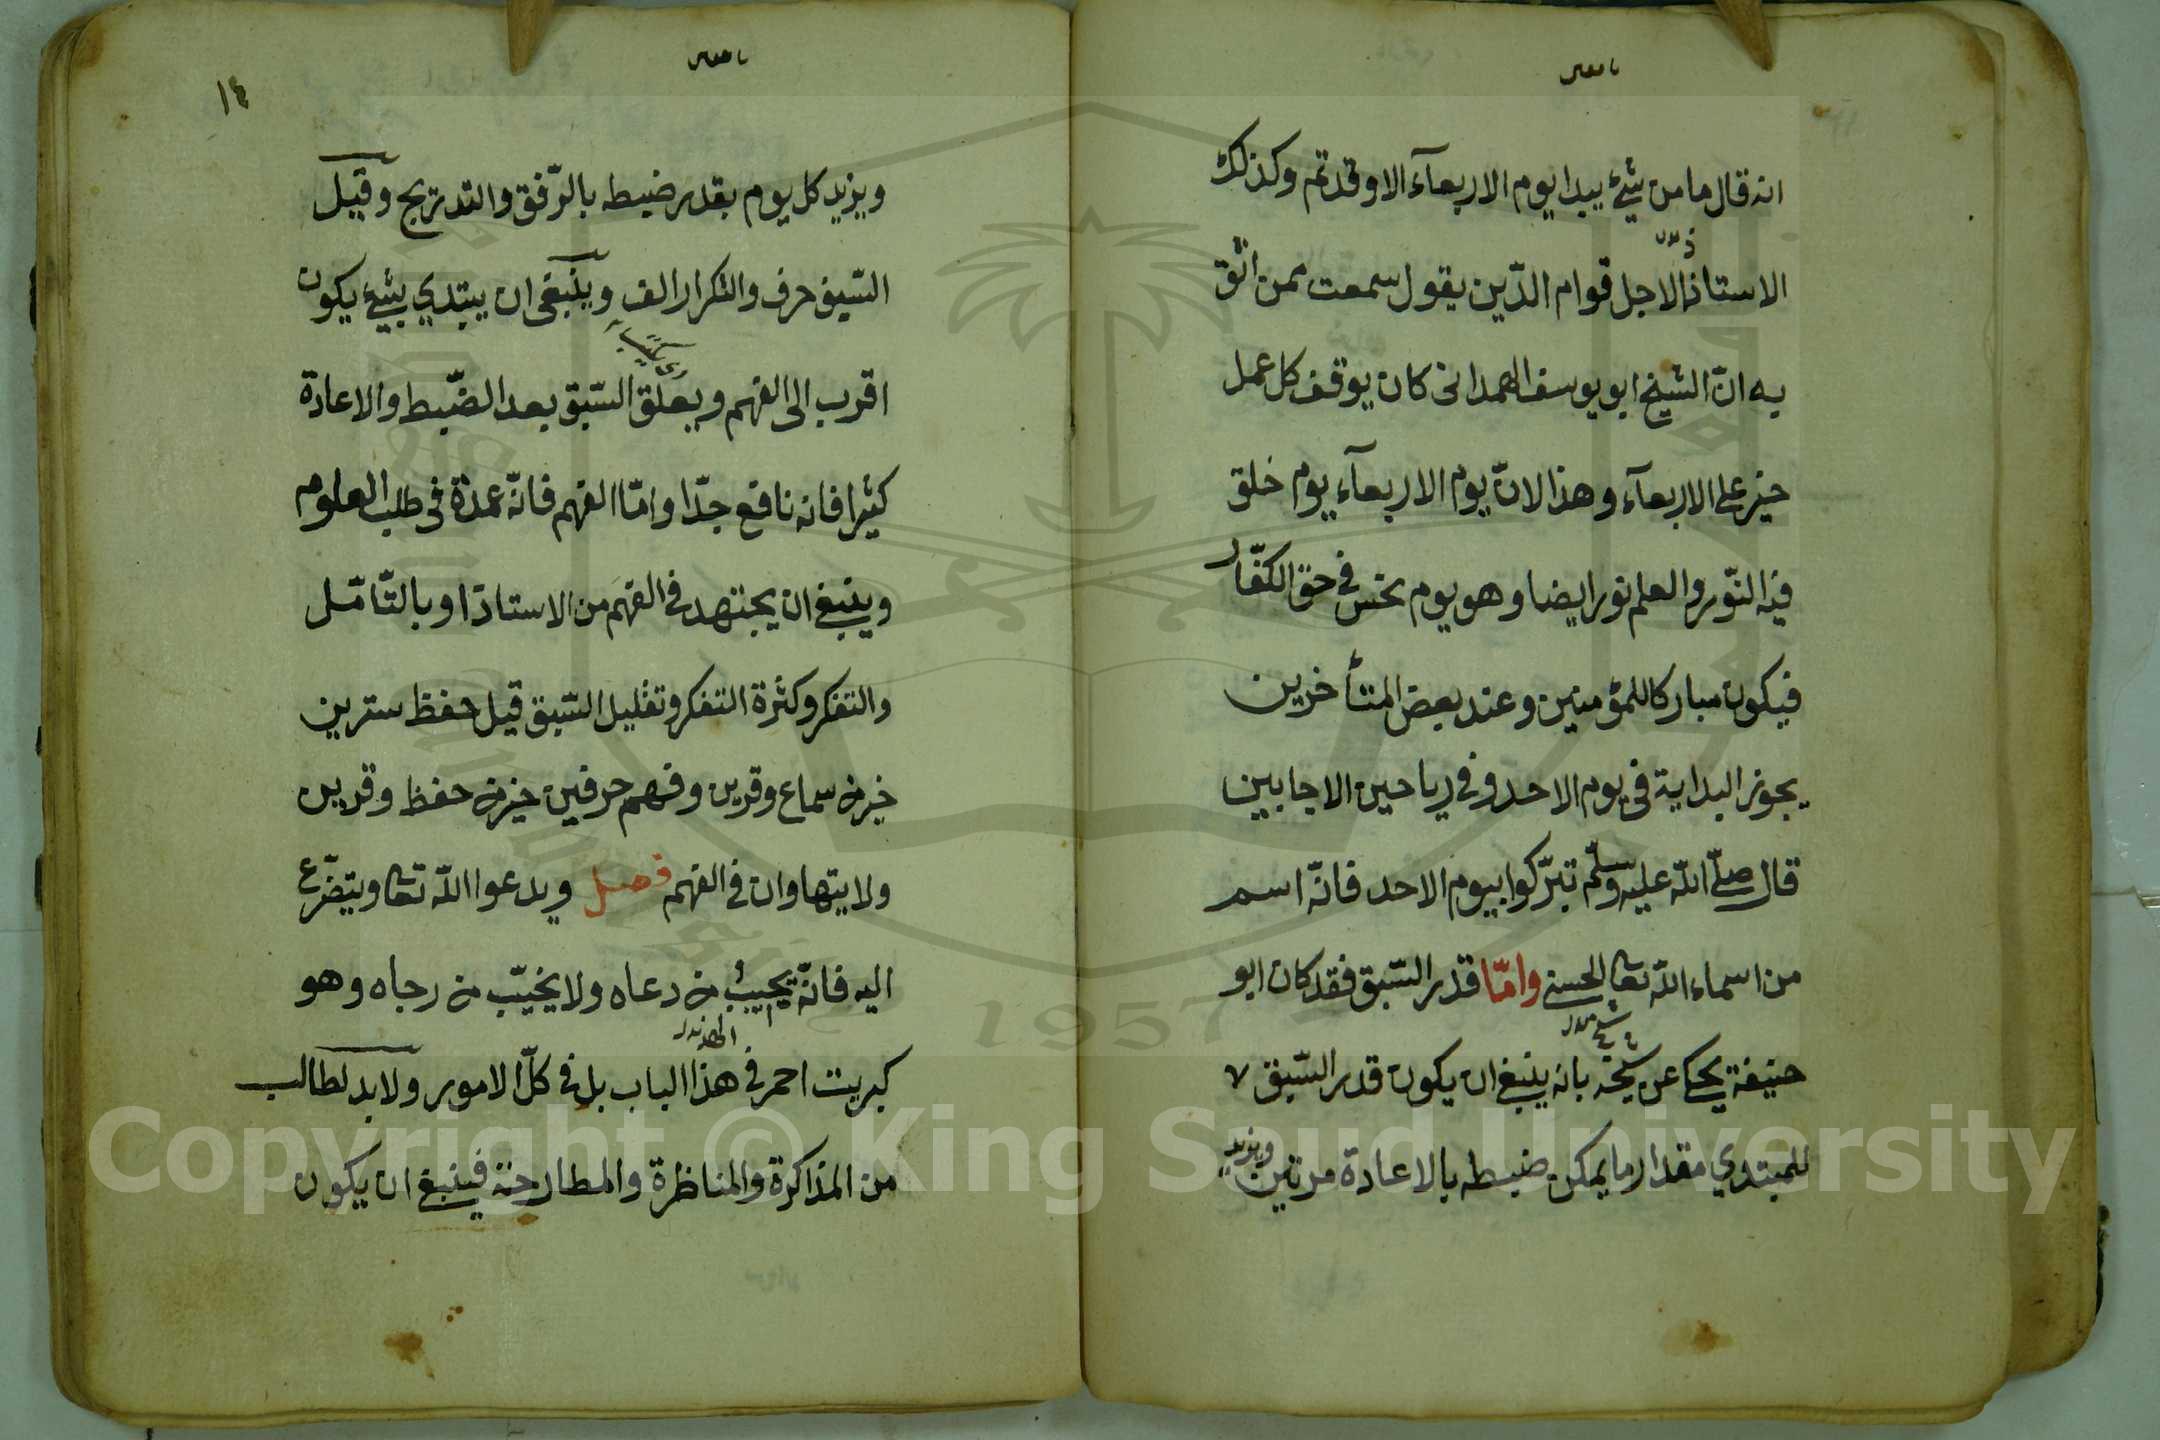 انه قال ما من شئ يبدا يوم الاربعآء الا وقد تم وكذلك
الاستاذ الاجل قوام الدّين يقول سمعت ممن اثق
به انّ الشيخ ابو يوسف الهمدانى كان يوقف كل عمل
خير على الاربعآء وهذا لانّ يوم الاربعآء يوم خلق
فيه النّور والعلم نور ايضا وهو يوم نحس فى حقّ الكفّار
فيكون مباركا للمؤمنين وعند بعض المتأخرين
يجوز البداية فى يوم الاحد وفى رياحين الاجابين
قال صلّى اللّه عليه وسلّم تبرّكوا بيوم الاحد فانّه اسم
من اسماء اللّه تعالى الحسنى وامّا قدر السّبق فقد كان ابو
حنيفة يحكى عن شيخه بانه ينبغى ان يكون قدر السّبق ٧
للمبتدي مقدار ما يمكن ضبطه بالاعادة مرتين
ويزيد
١٤
ويزيد كل يوم بقدر ضبطه بالرّفق والتدريج وقيل
السّبق حرف والتكرار الف وينبغى ان يبتدي بشئ يكون
اقرب الى الفهم ويعلق السّبق بعد الضّبط والاعادة
كثيرا فانه نافع جدّا وامّا الفهم فانّه عمدة فى طلب العلوم
وينبغى ان يجتهد فى الفهم من الاستاذ او بالتّامّل
والتفكر وكثرة التفكر وتقليل السّبق قيل حفظ سترين
خير من سماع وقرين وفهم حرفين خير من حفظ وقرين
ولا يتهاون فى الفهم فصل ويدعوا اللّه تعالى ويتضرّع
اليه فانّه يجيب من دعاه ولا يخيّب من رجاه وهو
كبريت احمر فى هذا الباب بل فى كلّ الامور ولا بد لطالب
من المذاكرة والمناظرة والمطارحة فينبغى ان يكون
1957
Copyright © King Saud University